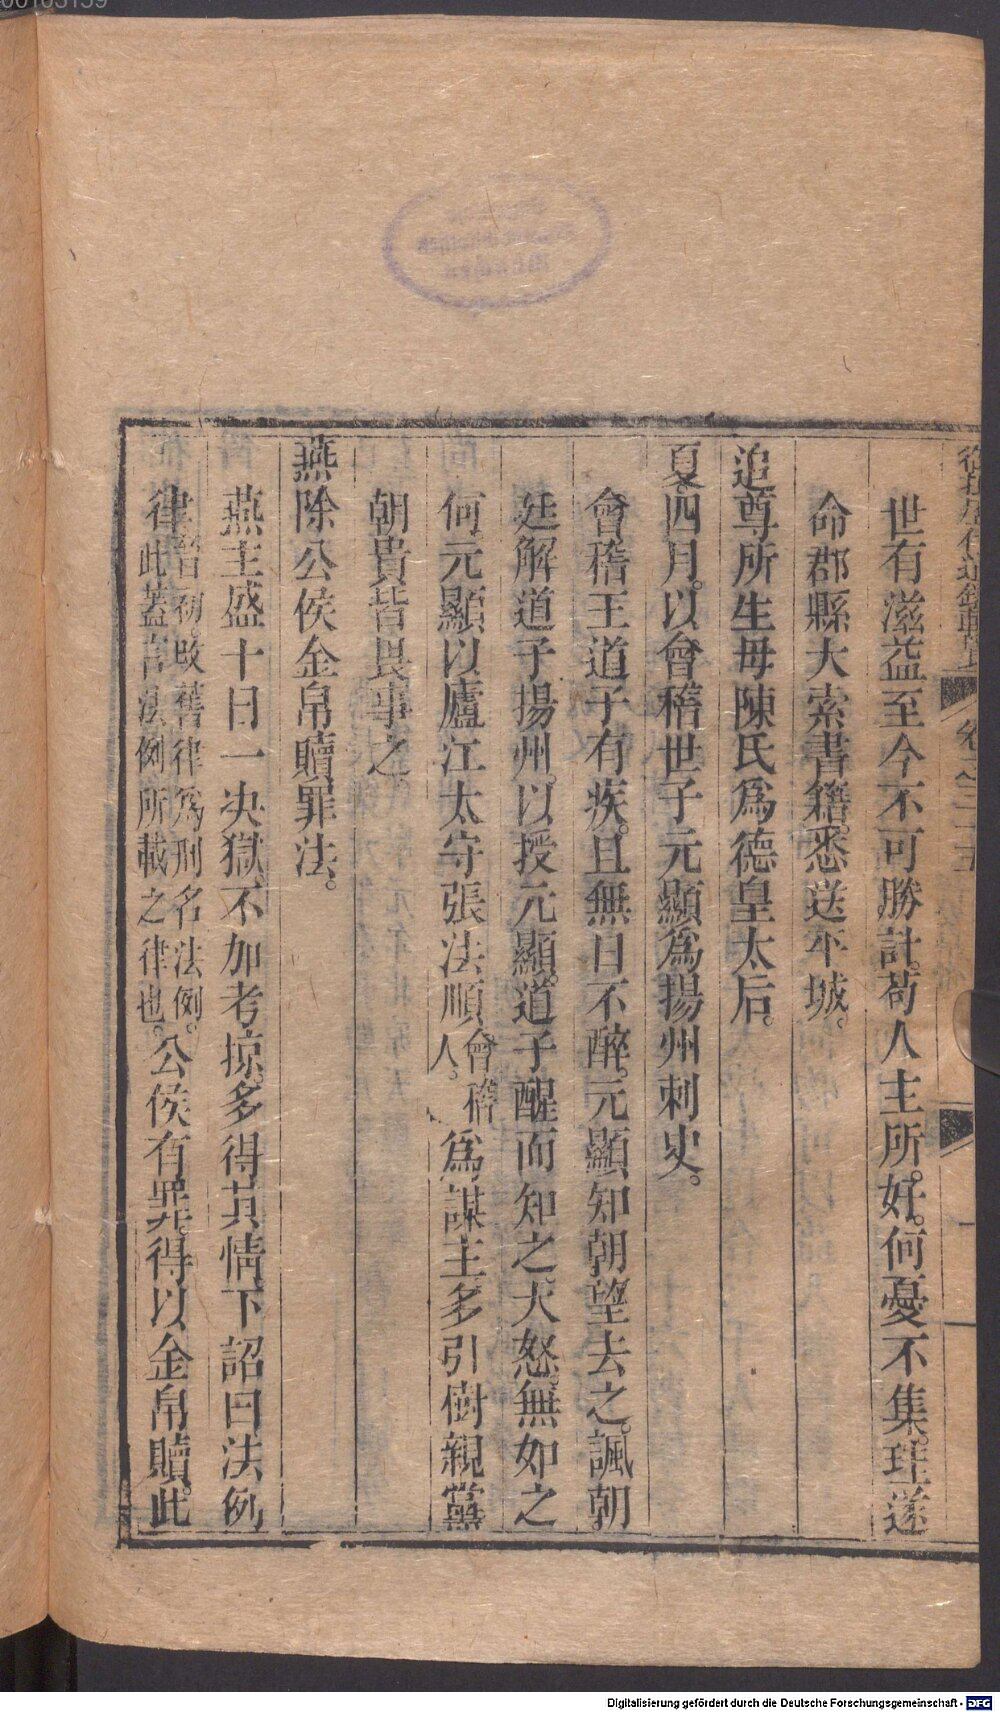 世有滋益至今不可勝計。苟人主所好。何憂不集。珪遂
命郡縣大索書籍。悉送平城。
追尊所生母陳氏爲德皇太后。
夏四月。以會稽世子元顯爲揚州刺史。
會稽王道子有疾。且無日不醉。元顯知朝望去之。諷朝
廷解道子揚州。以授元顯。道子醒而知之大怒。無如之
何。元顯以廬江太守張法順會稽人。爲謀主多引樹親黨
朝貴皆畏事之。
燕除公侯金帛贖罪法。
燕主盛十日一決獄。不加考掠。多得其情下詔曰法例
律晉初。改舊律爲刑名法例。此蓋言法例所載之律也。公侯有罪。得以金帛贖。此
Digitalisierung gefördert durch die Deutsche Forschungsgemeinschaft - DFG